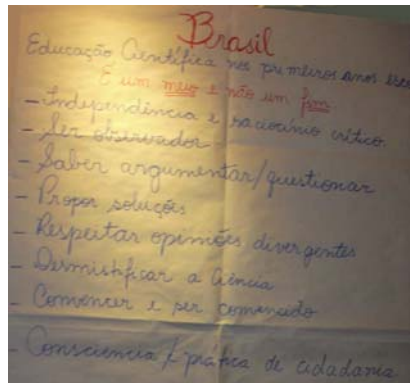 Brasil
Educação Científica nos primeiros anos esc
É um meio e não um fim.
- Independência e raciocínio crítico.
- Ser observador
- Saber argumentar/questionar
- Propor soluções
- Respeitar opiniões divergentes
- Desmistificar a Ciência
- Convencer e ser convencido
- Consciencia / prática de cidadania